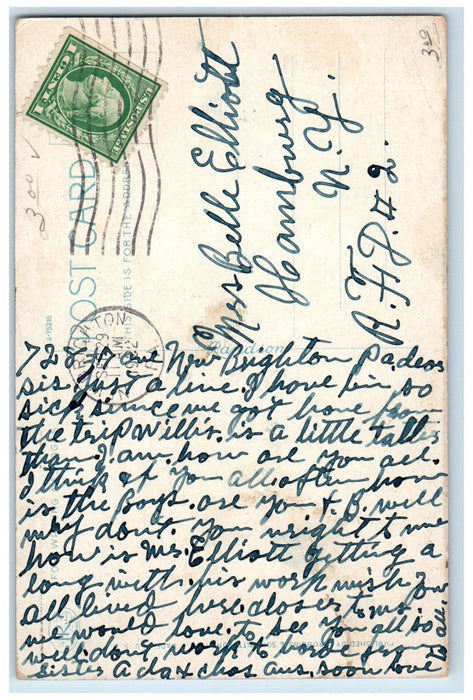 3.00 ✓
300
POST CARD
THIS SIDE IS FOR THE ADDRESS
A-75216
Miss Belle Elliott
Hamburg
N. Y.
R. F. D. # 2.
728-17 ave New Brighton Pa dear
sis. Just a line I have bin so
sick since we got home from
the trip Willis. is a little taller
than I am. how are you all.
I think of you all often how
is the Boys. are you & B. well
why dont. you wright to me
how is Mr. Elliott getting a
long with his work wish you
all lived here closer to us
we would love to see you all so
well dont work to hard from
sister Ada x chas ans. soon love
to all.